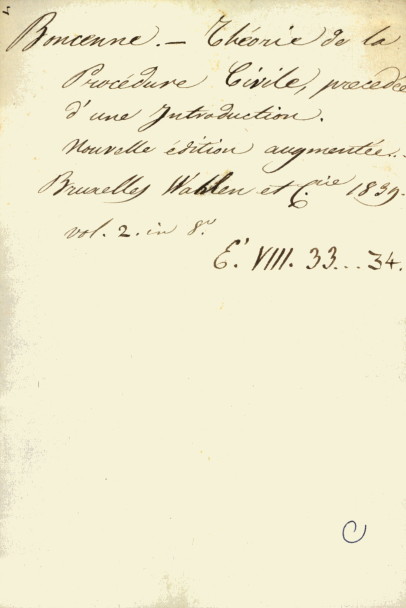 Boncenne. — Théorie de la
Procédure Civile, precedée
d'une Introduction.
Nouvelle édition augmentée.
Bruxelles Wahlen et C.nie 1839.
vol. 2. in 8.º
E'. VIII. 33...34.